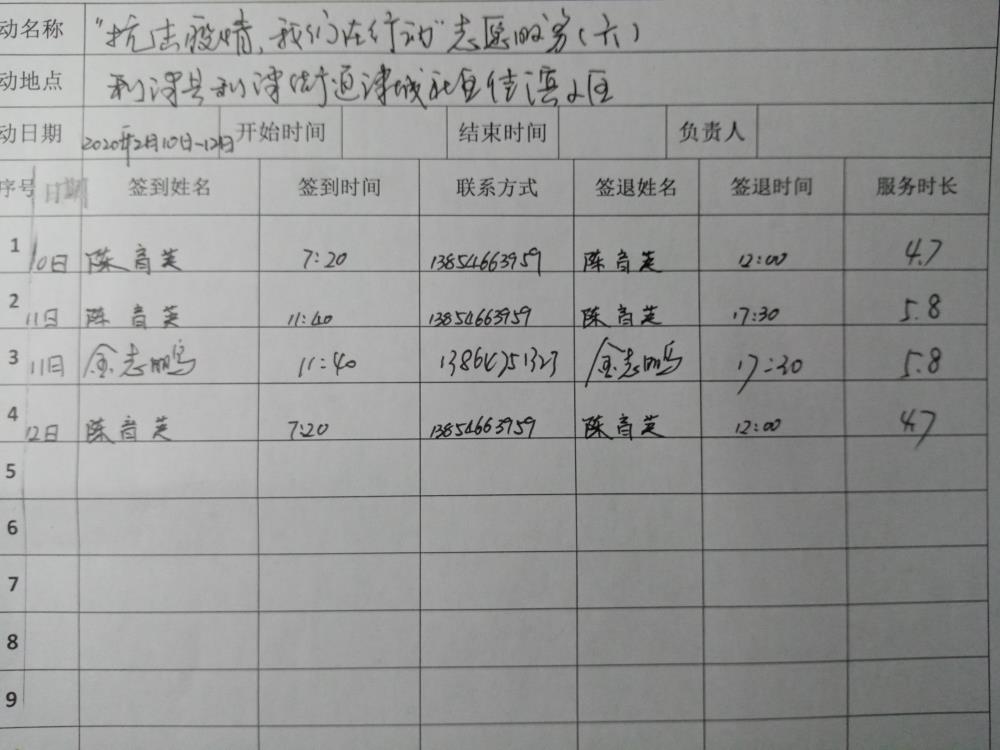 动名称 "抗击疫情,我们在行动"志愿服务(六)
动地点 利津县利津街道津城社区佳滨小区
动日期 2020年2月10日-12日 开始时间 结束时间 负责人
序号 日期 签到姓名 签到时间 联系方式 签退姓名 签退时间 服务时长
1 10日 陈育英 7:20 13854663959 陈育英 12:00 4.7
2 11日 陈育英 11:40 13854663959 陈育英 17:30 5.8
3 11日 金志鹏 11:40 金志鹏 17:30 5.8
4 12日 陈育英 7:20 13854663959 陈育英 12:00 4.7
5
6
7
8
9